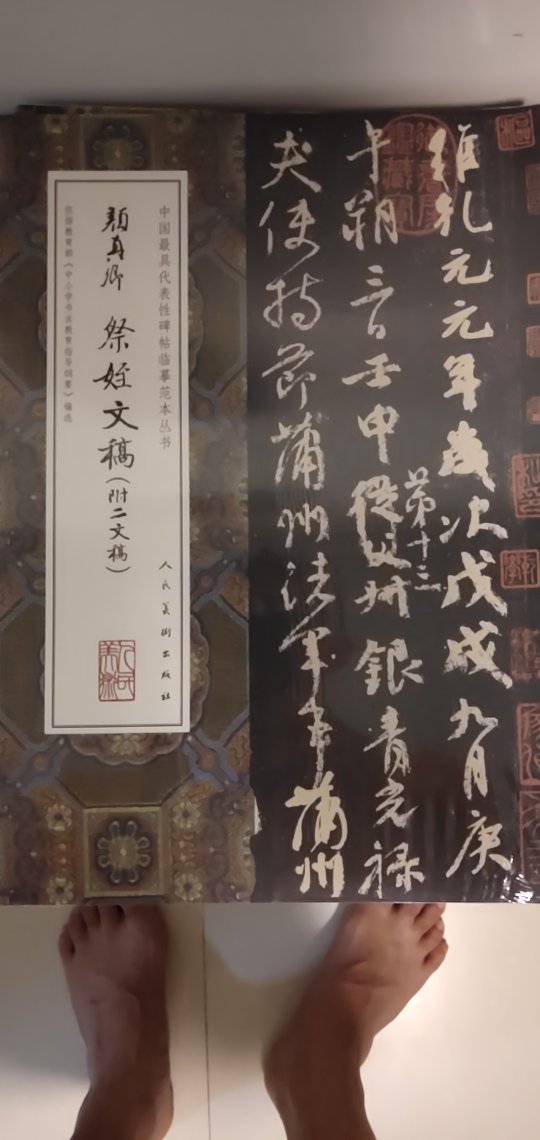 維乹元元年歲次戊戌九月庚
午朔三日壬申
第十三
從父
銀青光禄
夫使持節蒲州諸軍事蒲州
中国最具代表性碑帖临摹范本丛书
顔真卿 祭姪文稿(附二文稿)
依据教育部《中小学书法教育指导纲要》编选
人民美术出版社
人民美術